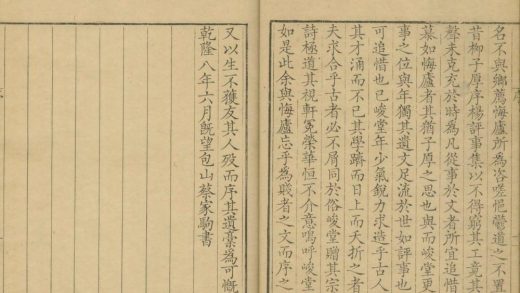 名不與鄉薦悔廬所為咨嗟悒鬱道之不置
昔柳子厚序楊評事集以不得窮其工竟其
聲未克充於時為凡從事於文者所宜追惜
葉如悔廬者其猶子厚之思也與而峻堂更
事之位與年獨其遺文足流於世如評事也
可追惜也已峻堂年少氣銳力求造乎古人
其才涌而不已其學躋而日上而夭折之者
夫求合乎古者必不屑同於俗峻堂贈其宗
詩極道其視軒冕榮華恒不介意嗚呼峻堂
如是此余與悔廬忘乎為賤者之文而序之
又以生不獲友其人歿而序其遺槀為可慨
乾隆八年六月旣望包山蔡家駒書